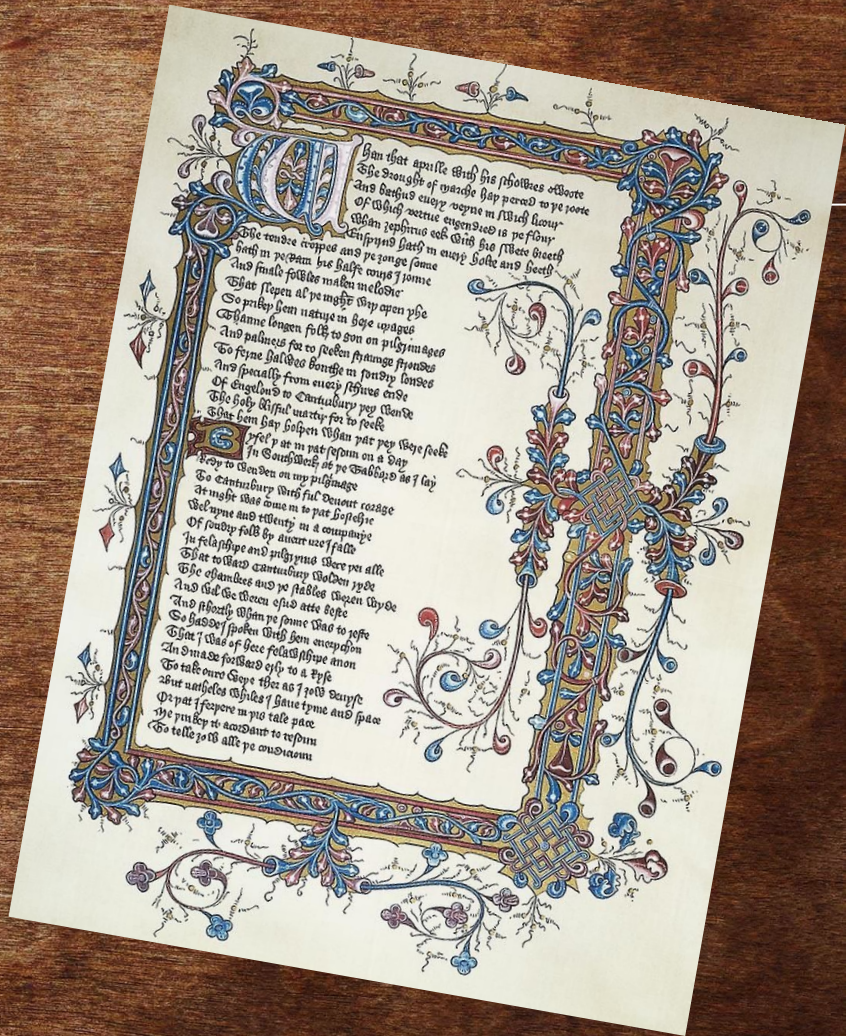 Whan that aprille with his schowres swoote
The drought of marche haþ perced to þe roote
And bathud euery veyne in swich licour
Of which vertue engendred is þe flour
Whan zephirus eek with his swete breeth
Enspirud hath in euery holte and heeth
The tendre croppes and þe ȝonge sonne
hath in þe Ram his halfe cours I ronne
And smale fowles maken melodie
That slepen al þe night wiþ open yhe
So prikeþ hem nature in here corages
Thanne longen folk to gon on pilgrimages
And palmers for to seeken straunge strondes
To ferne halwes kouthe in sondry londes
And specially from euery schires ende
Of Engelond to Canturbury þey wende
The holy blisful martir for to seeke
That hem haþ holpen whan þat þey were seeke
Byfel þat in þat sesoun on a day
In Southwerk at þe Tabbard as I lay
Redy to wenden on my pilgrimage
To Canturbury with ful deuout corage
At night was come in to þat hostelrie
Wel nyne and twenty in a companye
Of sondry folk by auenture I falle
In felaschipe and pilgryms were þei alle
That toward Canturbury wolden ryde
The chambres and þe stables weren wyde
And wel we weren esud atte beste
And schortly whan þe sonne was to reste
So hadde I spoken with hem euerychon
That I was of here felawschipe anon
And made forward erly to aryse
To take oure weye ther as I ȝow deuyse
But natheles whiles I haue tyme and space
Or þat I ferþere in þis tale pace
Me þinkeþ it acordant to resoun
To telle ȝow alle þe condicioun